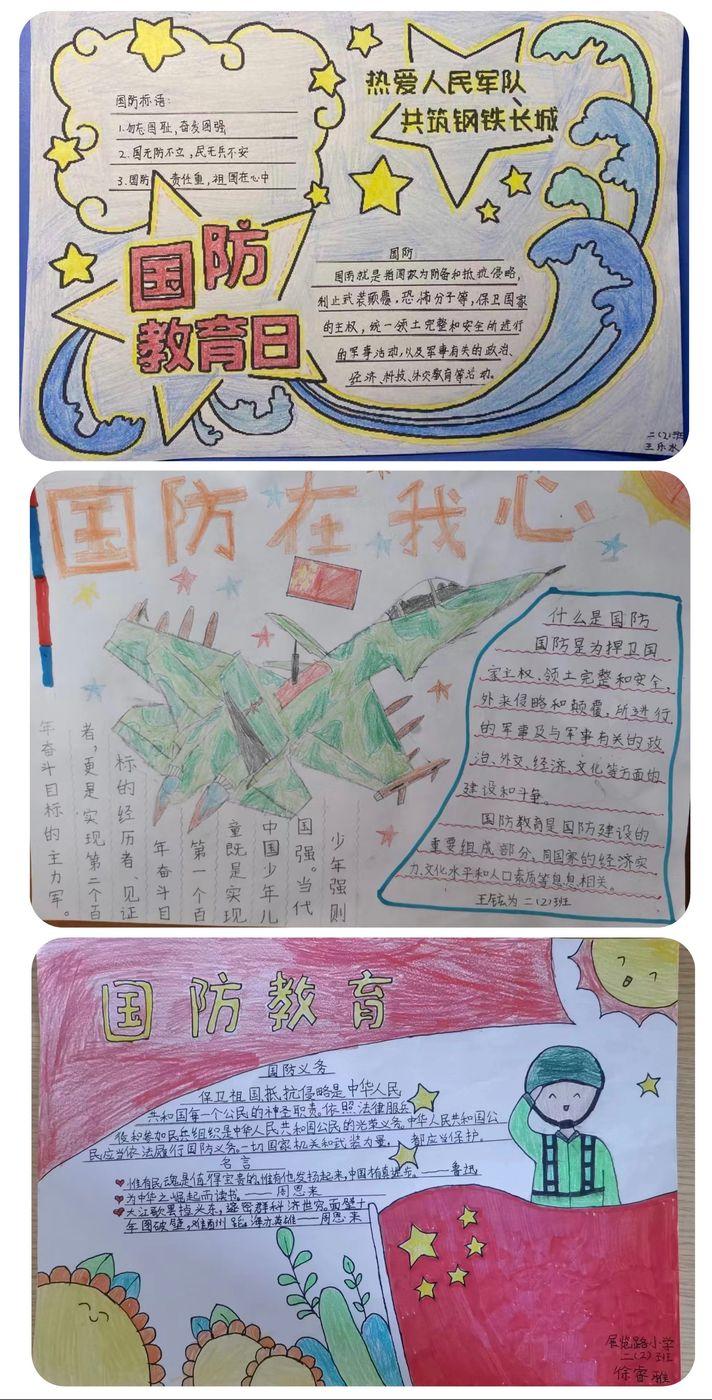 国防标语:
1.勿忘国耻,奋发图强
2.国无防不立,民无兵不安
3.国防 责任重,祖国在心中
热爱人民军队
共筑钢铁长城
国防
教育日
国防
国防就是指国家为防备和抵抗侵略,
制止武装颠覆,恐怖分子等,保卫国家
的主权,统一领土完整和安全所进行
的军事活动,以及军事有关的政治、
经济、科技、外交教育等活动。
二(2)班
王乐水
国防在我心
什么是国防
国防是为捍卫国
家主权、领土完整和安全,
外来侵略和颠覆,所进行
的军事及与军事有关的政
治、外交、经济、文化等方面的
建设和斗争。
国防教育是国防建设的
重要组成部分,同国家的经济实
力,文化水平和人口素质等息息相关。
王 为 二(2)班
少年强则
国强。当代
中国少年儿
童既是实现
第一个百
年奋斗目
标的经历者、见证
者,更是实现第二个百
年奋斗目标的主力军。
国防教育
国防义务
保卫祖国,抵抗侵略是中华人民
共和国每一个公民的神圣职责。依照法律服兵
役和参加民兵组织是中华人民共和国公民的光荣义务。中华人民共和国公
民应当依法履行国防义务。一切国家机关和武装力量, 都应当保护。
名言
惟有民魂是值得宝贵的,惟有他发扬起来,中国才有真进步。——鲁迅
为中华之崛起而读书。——周恩来
大江歌罢掉头东,邃密群科济世穷。面壁十
年图破壁,难酬 蹈海亦英雄——周恩来
展览路小学
二(2)班
徐睿雅